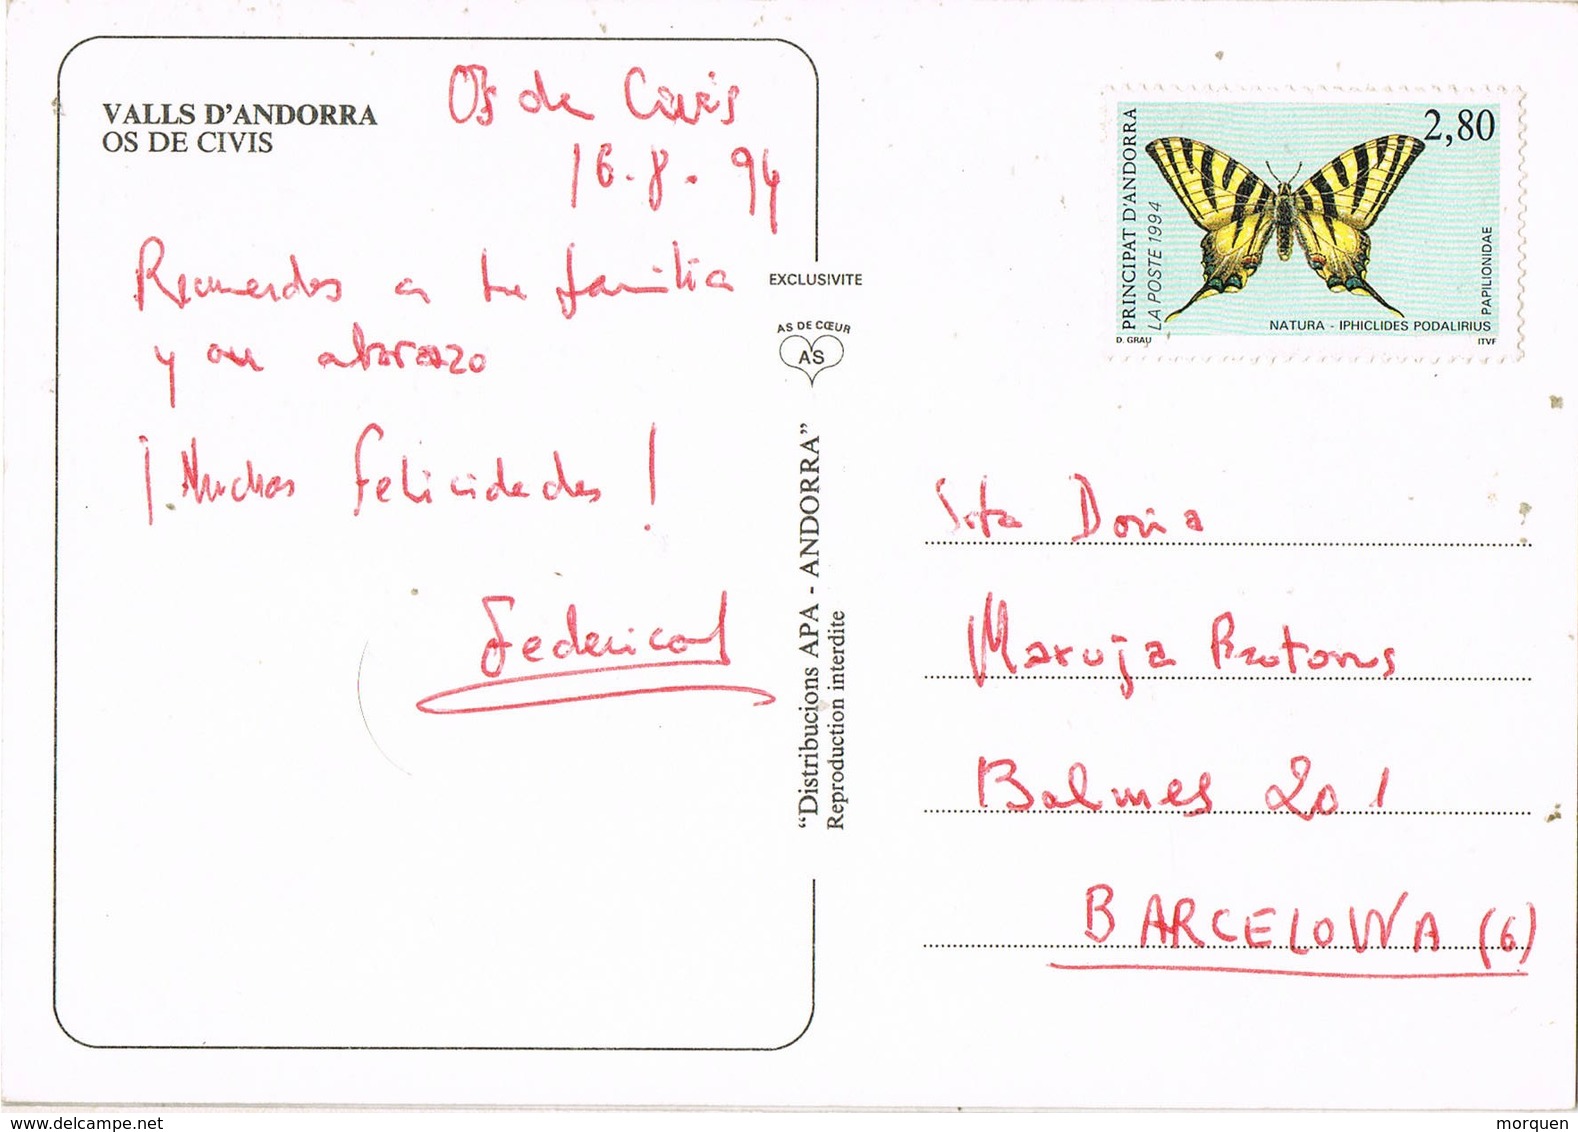 VALLS D'ANDORRA
OS DE CIVIS
Os de Civis
16-8-94
Recuerdos a tu familia
y un abrazo
¡Muchas felicidades!
EXCLUSIVITE
AS DE CŒUR
AS
"Distribucions APA - ANDORRA"
Reproduction interdite
PRINCIPAT D'ANDORRA
LA POSTE 1994
2,80
PAPILIONIDAE
NATURA - IPHICLIDES PODALIRIUS
D. GRAU
ITVF
Maruja
Balmes 201
BARCELONA (6)
morquen